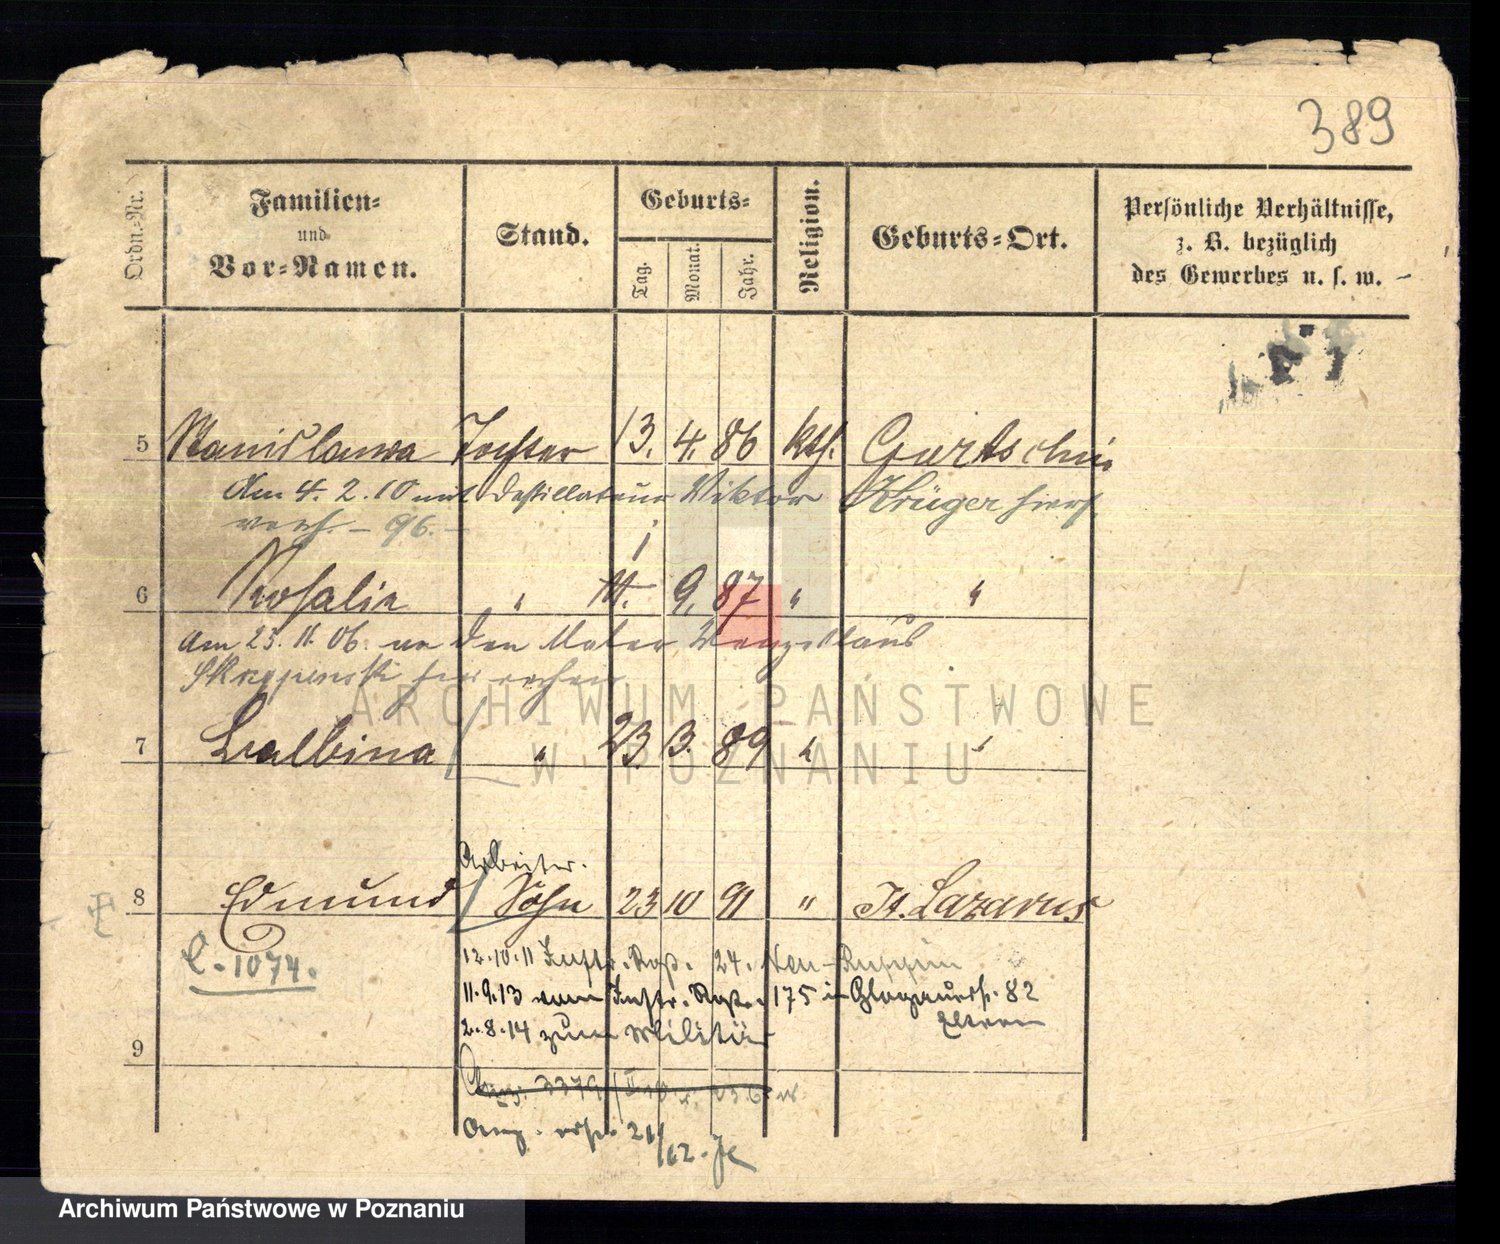 389
Ordn.-Nr.
Familien-
und
Vor-Namen.
Stand.
Geburts-
Tag.
Monat.
Jahr.
Religion.
Geburts-Ort.
Persönliche Verhältnisse,
z. B. bezüglich
des Gewerbes u. s. w.
5 Stanislawa Tochter 13. 4. 86 kth. Gurtschin
Am 4. 2. 10 mit Destillateur Viktor Krüger hier
verh. - 96. -
6 Rosalie " 11. 9. 87 " "
Am 23. 11. 06. an den Maler Wenzeslaus
hier
ARCHIWUM PAŃSTWOWE
W POZNANIU
7 Balbina " 23 3. 89 " "
Arbeiter.
8 Edmund Sohn 23 10 91 " St. Lazarus
C. 1074.
12.10.11 Inftr. Rgt. 24. Neu-Ruppin
11.9.13 vom Inftr. Rgt. 175 in Glogauerstr. 82
Eltern
2.8.14 zum Militär
9
Archiwum Państwowe w Poznaniu